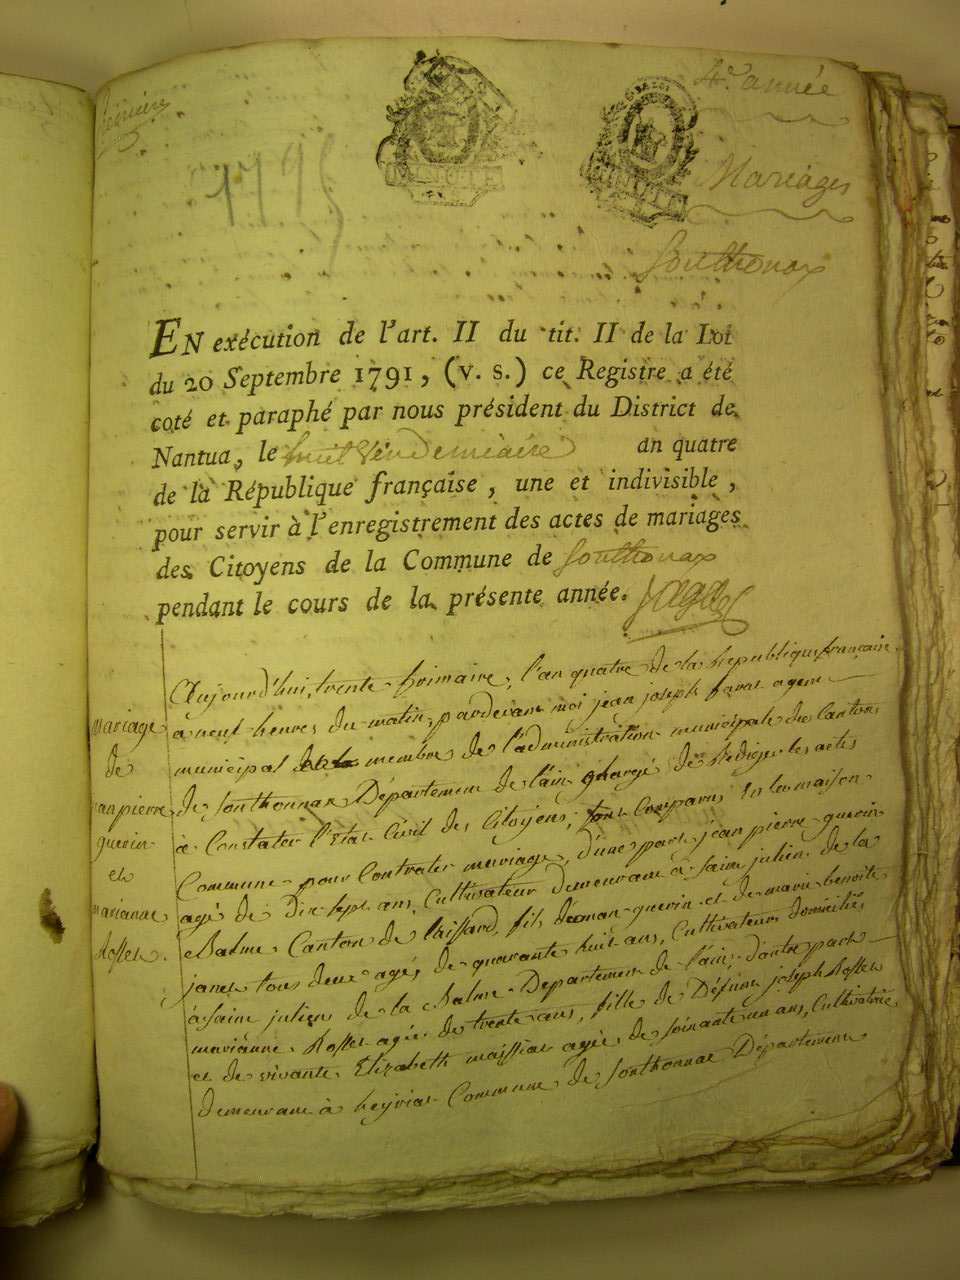 4.e année
Mariages
Sonthonax
EN exécution de l'art. II du tit. II de la Loi
du 20 Septembre 1791, (v. s.) ce Registre a été
coté et paraphé par nous président du District de
Nantua, le huit Vendemiaire an quatre
de la République française, une et indivisible,
pour servir à l'enregistrement des actes de mariages
des Citoyens de la Commune de Sonthonax
pendant le cours de la présente année.
Mariage
de
jean pierre
guerin
et
marianne
Rosset.
Aujourd'hui, trente frimaire, l'an quatre de la Republique française
a neuf heures du matin, pardevant moi jean joseph favre agent
municipal membre de l'administration municipale du Canton
de Sonthonnax Département de l'ain Chargé de Rediger les actes
à Constater l'Etat Civil des Citoyens, sont Comparus En la maison
Commune pour Contracter mariage, d'une part jean pierre guerin
agé de Dix sept ans, Cultivateur demeurant à Saint julien de la
Balme Canton de fils de guerin et de marie benoite
janet tous deux agés de quarante huit ans, Cultivateurs domiciliés
à saint julien de la Balme Departement de l'ain. D'autre part
marianne Rosset agée de trente ans, fille de Défunt joseph Rosset
et de vivante Elizabeth maissiat agée de soixante un ans, Cultivatrice
demeurant à heyriat Commune de Sonthonnax Département